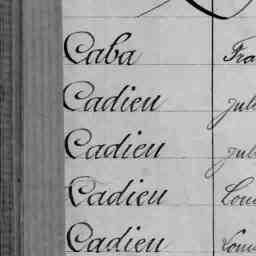 Caba Fra
Cadieu Juli
Cadieu Juli
Cadieu Loui
Cadieu Loui